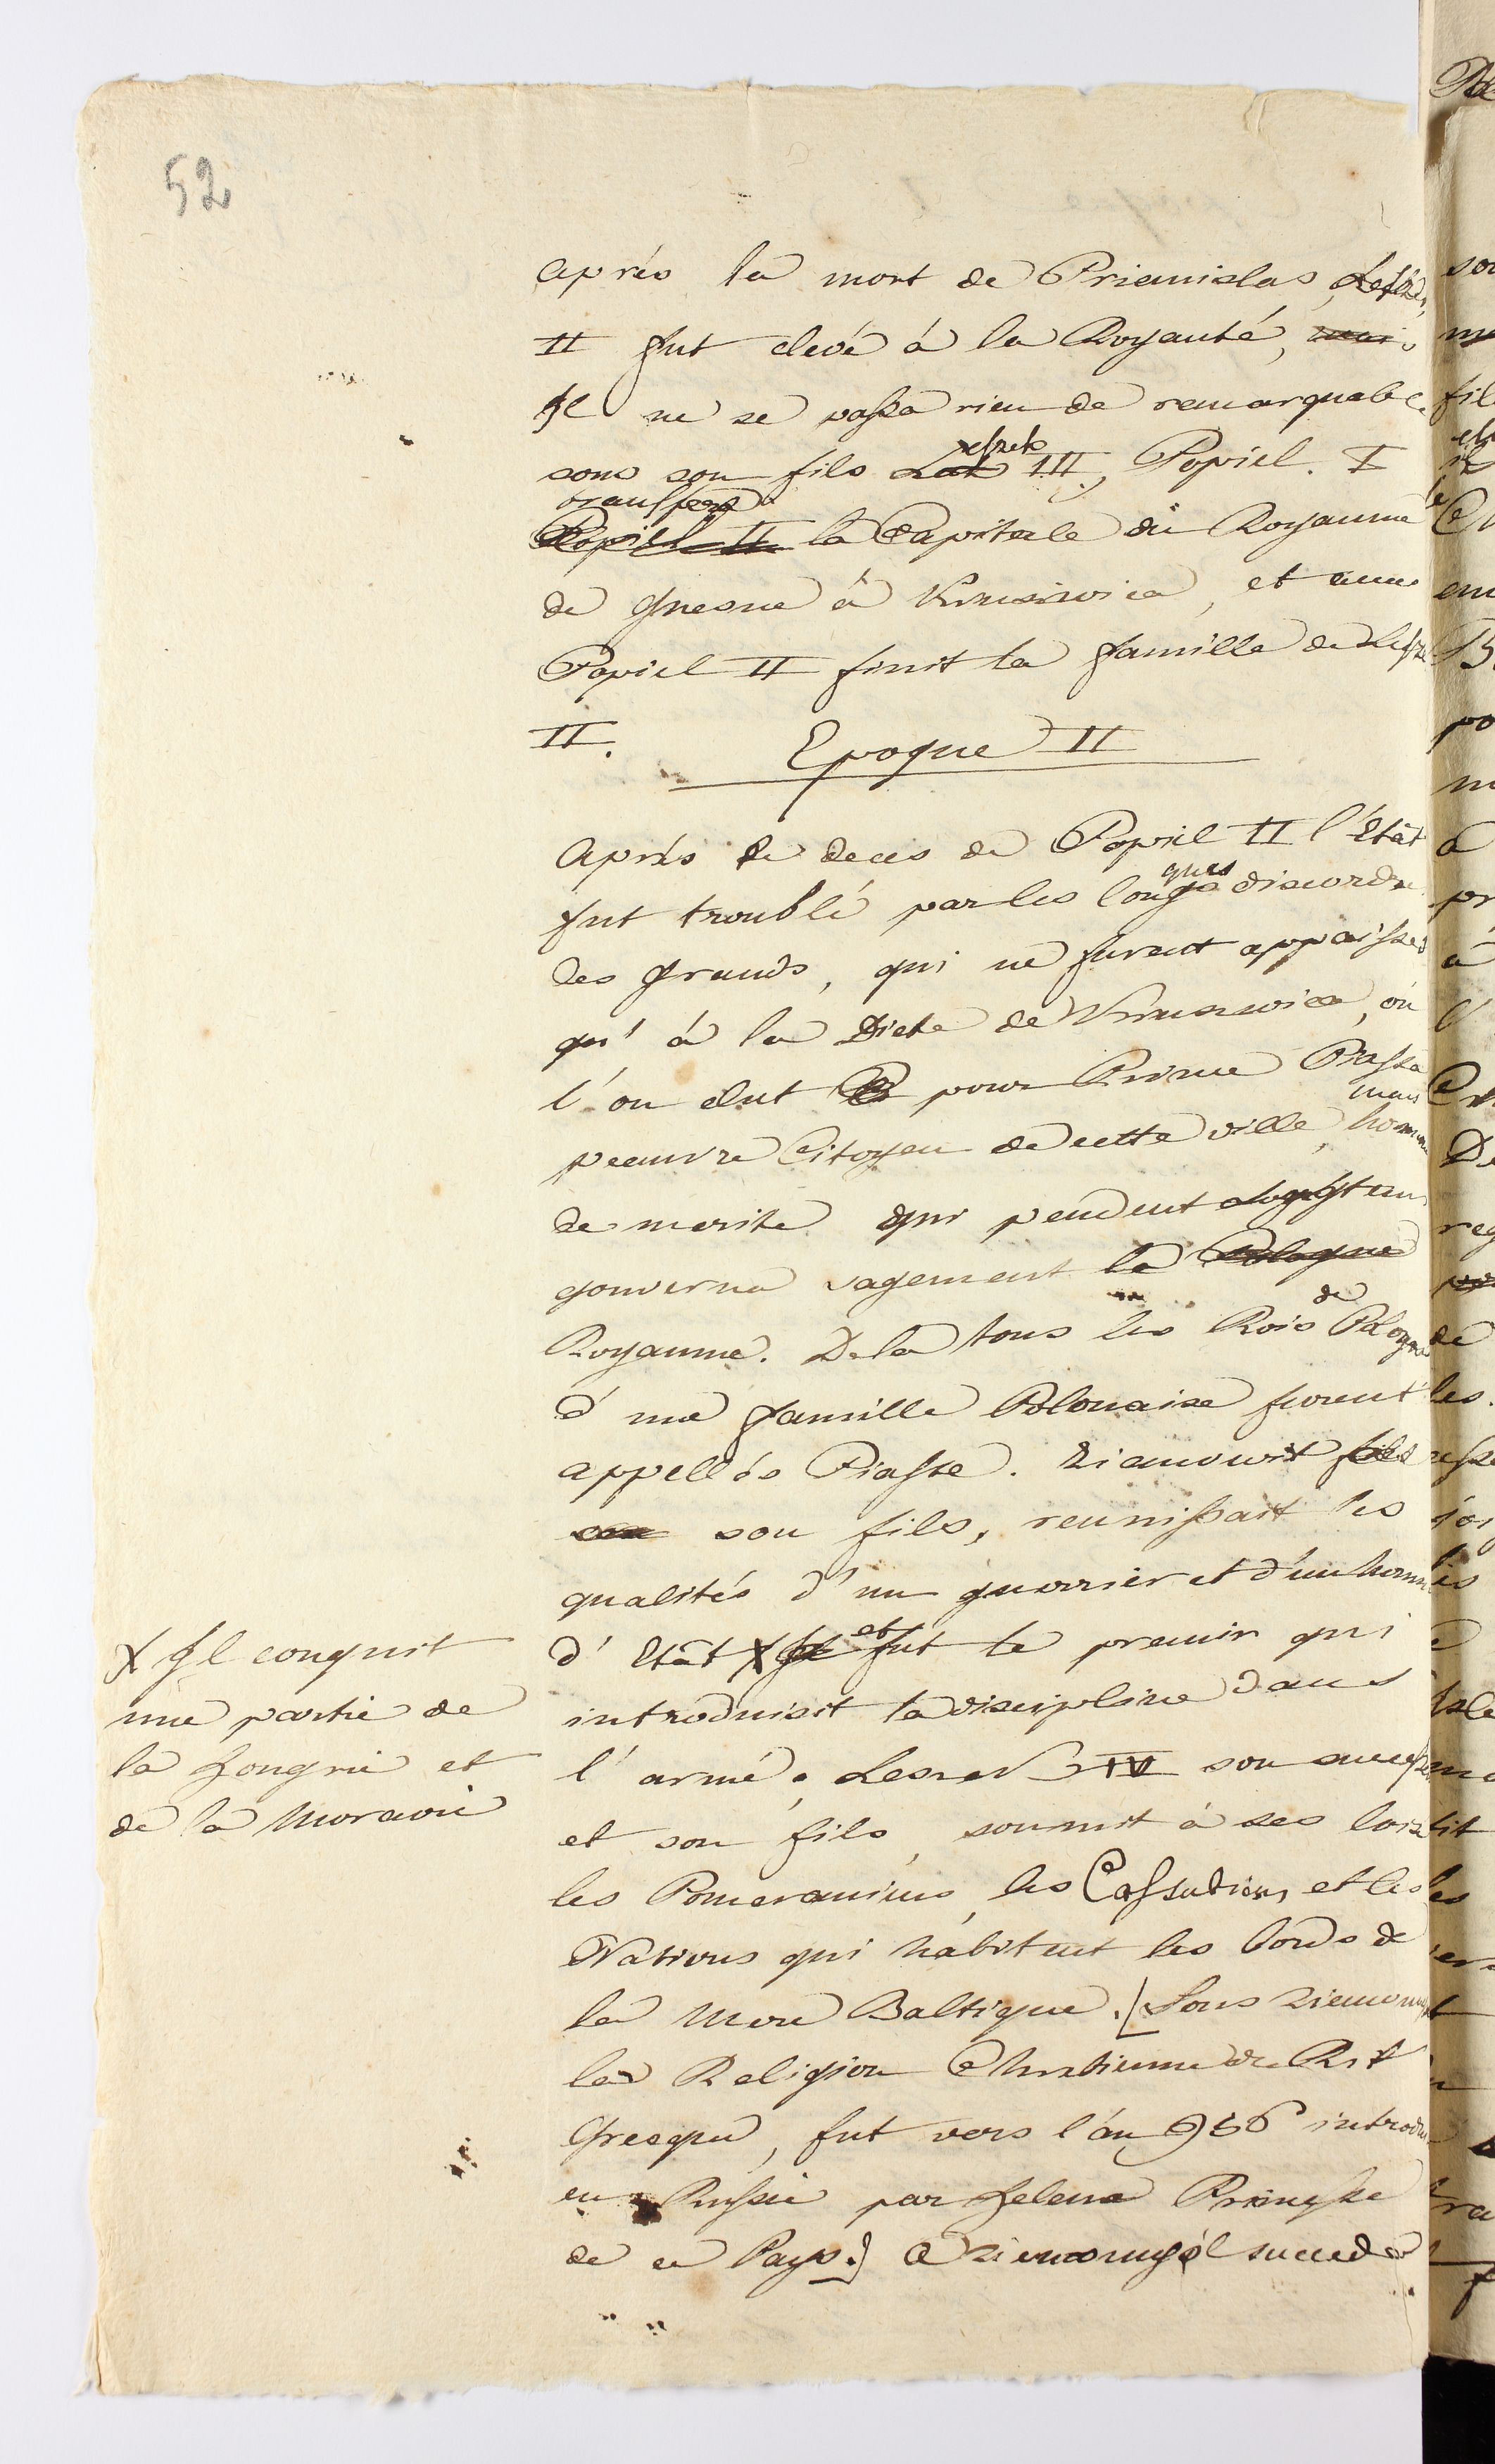 52
après la mort de Priemislas,
II fut elevé à la Royauté, mais
Il ne se passa rien de remarquable
sous son fils Leszek III, Popiel. I
transfera
Popiel II la Capitale du Royaume
de Gnesne à Kruszwica, et avec
Popiel II finit la famille de
II.
Epoque II
Après le deces de Popiel II l'Etat
fut troublé par les longues discordes
des Grands, qui ne furent appaisses
qu'à la Diete de Kruszwica, où
l'on elut pour Prince Piasta
peauvre Citoyen de cette ville, mais homme
de merite qui pendent
gouverna sagement le Pologne
Royaume. De la tous les Rois de Pologne
d'une famille Polonaise furent
appellés Piaste. Ziemowit fils
son fils, reunissait les
qualités d'un guerrier et d'un homme
d'Etat X Il et fut le premier qui
introduisit la discipline dans
l'armé. Leszek IV son
et son fils, soumit à ses loix
les Pomeraniens, les Cassubiens, et les
Nations qui habitent les bords de
la Mere Baltique. [Sous
la Religion Chretienne de Rit
Grecque, fut vers l'an 956
en Russie par Helena Prinçesse
de ce Pays.] a succeda
X Il conquit
une partie de
la Hongrie et
de la Moravie